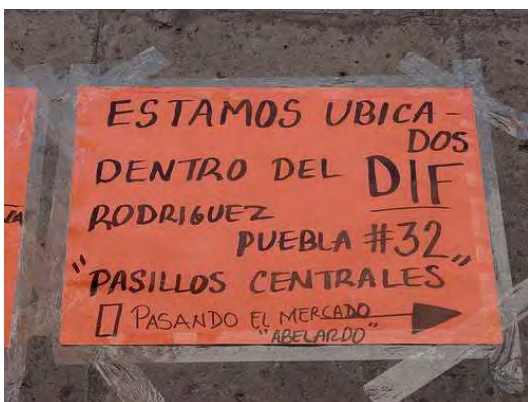 ESTAMOS UBICA-
DOS
DENTRO DEL DIF
RODRIGUEZ
PUEBLA #32
"PASILLOS CENTRALES"
PASANDO EL MERCADO
"ABELARDO"